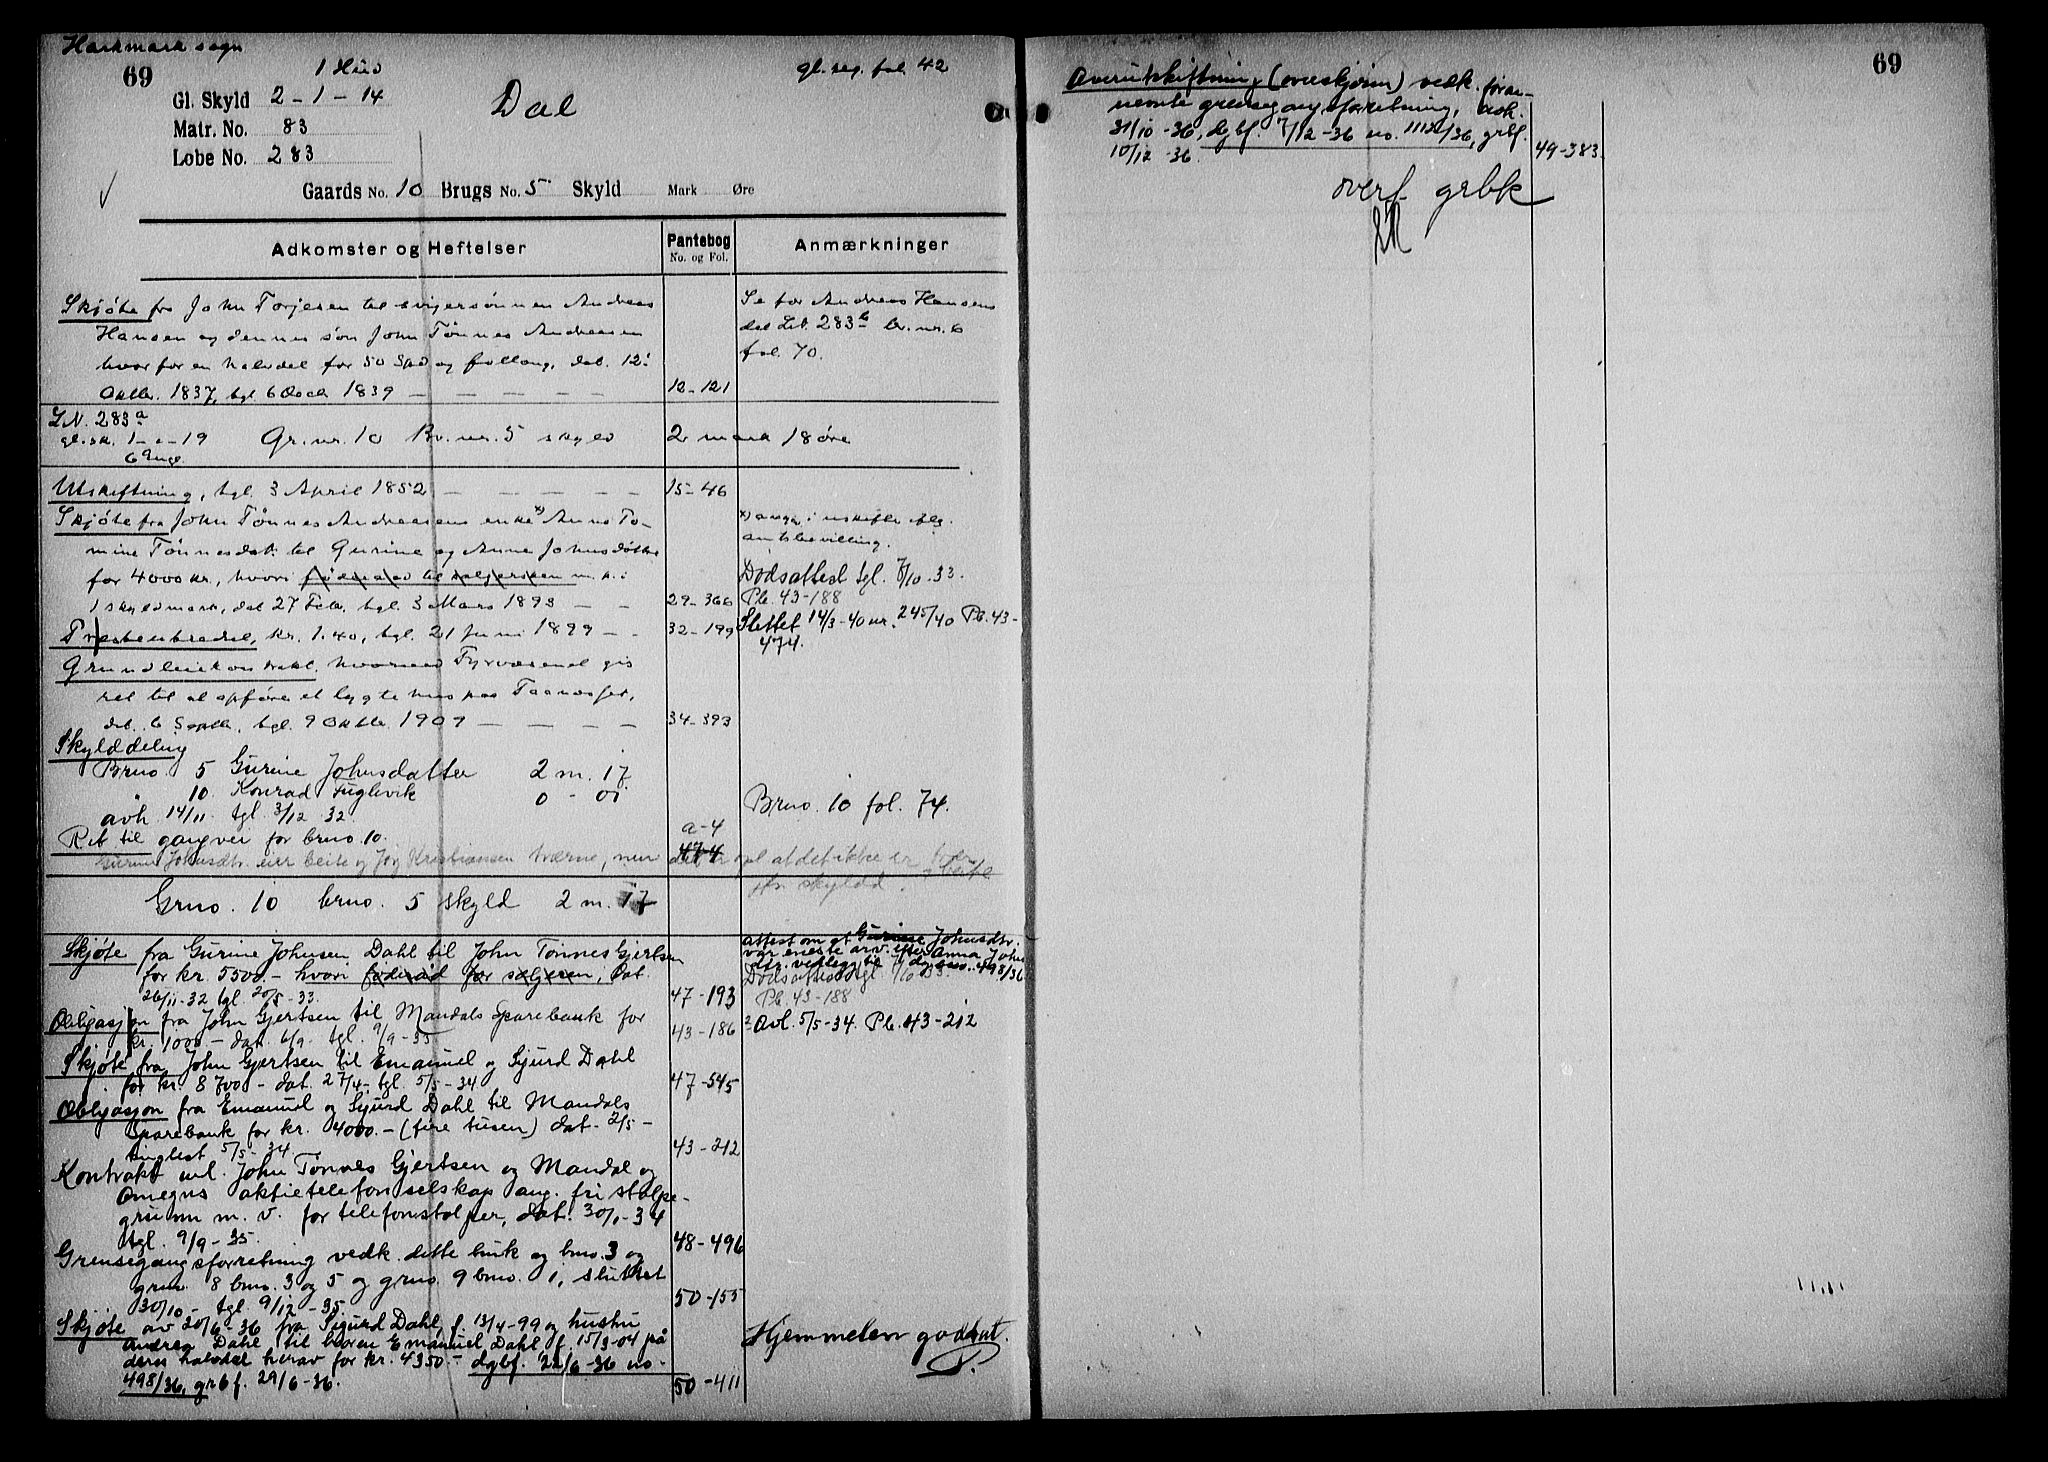 Harkmark sogn
69
1 Hud
gl. reg. fol. 42
Gl. Skyld 2-1-14
Dal
Matr. No. 83
Lobe No. 283
Gaards No. 10 Brugs No. 5 Skyld Mark Øre
Adkomster og Heftelser
Pantebog
No. og Fol.
Anmærkninger
Skjöte fra John Torjesen til svigersönnen Andreas
Hansen og dennes sön John Tönnes Andreasen
hvorfor en halvdel for 50 Spd og follaug, dat. 12.
Oktbr. 1837, tgl 6 Decbr 1839 — — — — —
12-121
Se for Andreas Hansens
del Lb. 283 b br. nr. 6
fol. 70.
LN. 283 a
gl. sk. 1-"-19
Gr. nr. 10 Br. nr. 5 skyld 2 mark 18 öre
6 Engl.
Utskiftning, tgl. 3 April 1852 — — — — —
15-46
Skjöte fra John Tönnes Andreasens enke x) Anne To-
mine Tönnesdat. til Gurine og Anne Johnsdötre
for 4000 kr., hvori föderaad til sælgersken m. k.:
1 skyldmark, dat 27 Febr. tgl. 3 Mars 1893 — —
29-366
x) ang. i uskiftet iflg.
amtsbevilling.
Dödsattest tgl. 7/10-33.
Pb. 43-188
Prestenbredsel, kr. 1.40, tgl. 21 Juni 1899 - -
32-199
Slettet 14/3-40 nr. 245/40 Pb. 43-
474.
Grundleiekontrakt, hvormed Fyrvæsenet gis
ret til at opföre et lygtehus paa Taanesset,
dat. 6 Septbr, tgl. 9 Oktbr. 1907 — — — —
34-393
Skylddeling
Brno. 5 Gurine Johnsdatter 2 m. 17
10. Konrad Fuglevik 0 - 01
avh. 14/11. tgl. 3/12 32.
Brno. 10 fol. 74.
Ret til gangvei for brno 10.
a-4
474
Gurine Johnsdtr. eier beite og Jörg Kristiansen tværne, men det opl at det ikke er
skyldd.
Grno. 10 brno. 5 skyld 2 m. 17
Skjøte fra Gurine Johnsen Dahl til John Tønnes Gjertsen
for kr 5500 - hvori føderåd for selgeren, Dat.
26/11-32 tgl. 20/5-33.
47-193
attest om at Gurine Johnsdtr.
var eneste arv. efter Anna Johns
dtr. vedlegg til dgbno. 498/36
Dødsattest tgl. 7/10 33.
Pb. 43-188
Obligasjon fra John Gjertsen til Mandals Sparebank for
kr. 1000 - dat. 6/9. tgl. 9/9-33
43-186
2 Avl. 5/5-34. Pb. 43-212
Skjøte fra John Gjertsen til Emanuel og Sjurd Dahl
for kr. 8700 - dat. 27/4- tgl. 5/5-34
47-545
Obligasjon fra Emanuel og Sjurd Dahl til Mandals
Sparebank for kr. 4000.- (fire tusen) dat. 2/5-
tinglest 5/5-34
43-212
Kontrakt ml. John Tønnes Gjertsen og Mandal og
Omegns aktietelefonselskap ang. fri stolpe-
grunn m. v. for telefonstolper, dat. 30/1-34
tgl. 9/9-35.
48-496
Grensegangsforretning vedk. dette bruk og brno. 3 og
grno. 8 brno. 3 og 5 og grno. 9 brno. 1, sluttet
30/10 - tgl. 9/12-35
50-155
Skjøte av 20/6-36 fra Sigurd Dahl, f. 13/4-99 og hustru
Andrea Dahl til broren Emanuel Dahl f. 15/3-04 på
deres halvdel herav for kr. 4350.- dgbf. 22/6-36 no-
498/36, grbf. 29/6-36.
50-411
Hjemmelen godtat.
P.
69
Overutskiftning (overskjønn) vedk. foran-
nevnte grensegangsforretning, avh.
31/10-36, dgbf. 7/12-36 no. 1112/36, grbf.
10/12-36.
49-383.
overf. grbk